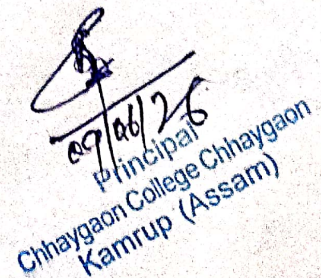 09/06/26
Principal
Chhaygaon College Chhaygaon
Kamrup (Assam)